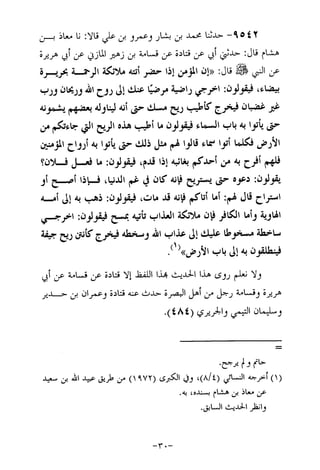 ٩٥٤٢- حدثنا محمد بن بشار وعمرو بن علي قالا: نا معاذ بـــن
هشام قال: حدثني أبي عن قتادة عن قسامة بن زهير المازني عن أبي هريرة
عن النبي ﷺ قال: «إن المؤمن إذا حضر أتته ملائكة الرحمـــة بحريـــرة
بيضاء، فيقولون: اخرجي راضية مرضيًا عنك إلى روح الله وريحان ورب
غير غضبان فيخرج كأطيب ريح مسك حتى أنه ليناوله بعضهم يشمونه
حتى يأتوا به باب السماء فيقولون ما أطيب هذه الريح التي جاءتكم من
الأرض فكلما أتوا سماء قالوا لهم مثل ذلك حتى يأتوا به أرواح المؤمنين
فلهم أفرح به من أحدكم بغائبه إذا قدم، فيقولون: ما فعـــل فـــلان؟
يقولون: دعوه حتى يستريح فإنه كان في غم الدنيا، فـــإذا صـــحى أو
استراح قال لهم: أما أتاكم فإنه قد مات، فيقولون: ذهب به إلى أمـــه
الهاوية وأما الكافر فإن ملائكة العذاب تأتيه بمسح فيقولون: اخرجـــي
ساخطة مسخوطًا عليك إلى عذاب الله وسخطه فيخرج كأنتن ريح جيفة
فينطلقون به إلى باب الأرض»(١).
ولا نعلم روى هذا الحديث بهذا اللفظ إلا قتادة عن قسامة عن أبي
هريرة وقسامة رجل من أهل البصرة حدث عنه قتادة وعمران بن حـــدير
وسليمان التيمي والجريري (٤٨٤).
=
حاتم ولم يرجح.
(١) أخرجه النسائي (٨/٤)، وفي الكبرى (١٩٧٢) من طريق عبيد الله بن سعيد
عن معاذ بن هشام بسنده، به.
وانظر الحديث السابق.
-٣٠-